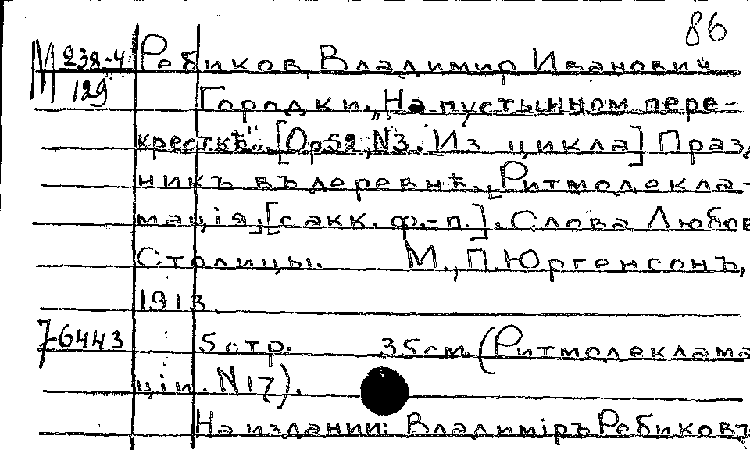 86
М 232-4 Ребиков, Владимир Иванович
129
Городки. „На пустынном пере-
крестке". [Op52, N3. Из цикла] Празд
никъ въ деревнѣ. [Ритмодекла-
мація, [с акк. ф.-п.]. Слова Любов
Столицы. М., П. Юргенсонъ,
1913
7-6443 5 стр. 35 см. (Ритмодеклама
ціи. N17).
На издании: Владиміръ Ребиковъ